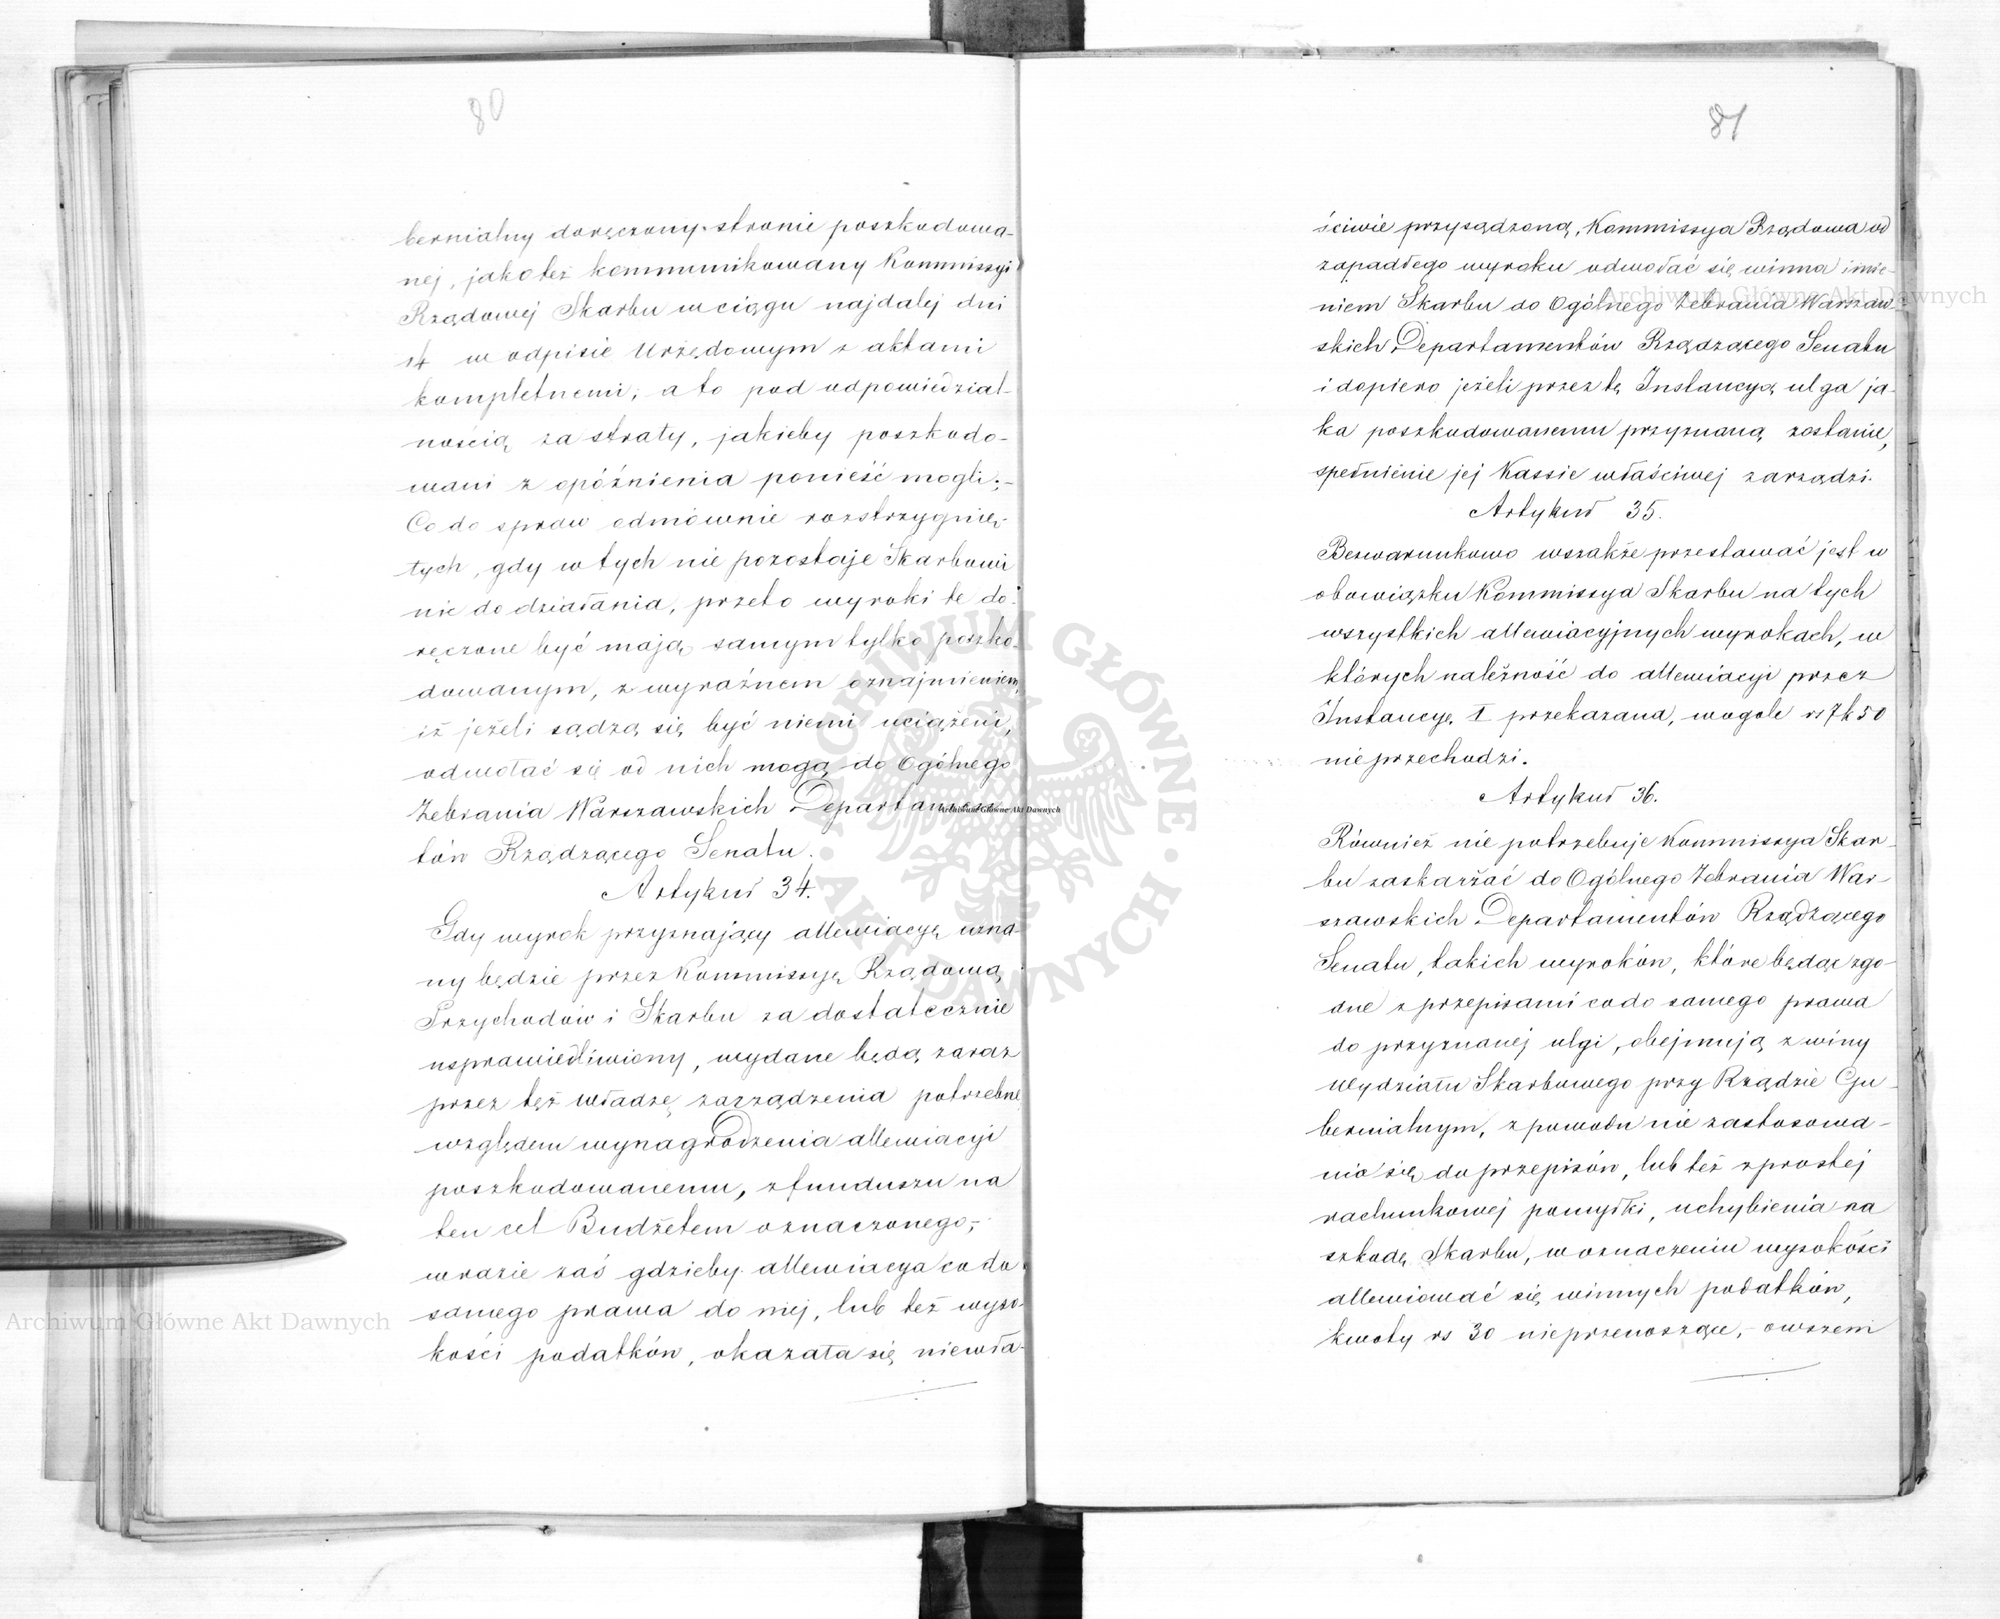 80
bernialny doręczony stronie poszkodowa-
nej, jako też kommunikowany Kommissyi
Rządowej Skarbu w ciągu najdalej dni
14 w odpisie Urzędowym z aktami
kompletnemi; a to pod odpowiedzial-
nością za straty, jakieby poszkodo-
wani z opóźnienia ponieść mogli;-
Co do spraw odmównie rozstrzygnię-
tych, gdy w tych nie pozostaje Skarbowi
nic do działania, przeto wyroki te do-
ręczone być mają samym tylko poszko-
dowanym, z wyraźnem oznajmieniem,
iż jeżeli sądzą się być niemi uciążeni,
odwołać się od nich mogą do Ogólnego
Zebrania Warszawskich Departamen-
tów Rządzącego Senatu.
Artykuł 34.
Gdy wyrok przyznający allewiacyę uzna-
ny będzie przez Kommissyę Rządową
Przychodów i Skarbu za dostatecznie
usprawiedliwiony, wydane będą zaraz
przez tęż władzę zarządzenia potrzebne
względem wynagrodzenia allewiacyi
poszkodowanemu, z funduszu na
ten cel Budżetem oznaczonego;-
w razie zaś gdzieby allewiacya co do
samego prawa do niej, lub też wyso-
kości podatków, okazała się niewła-
81
ściwie przysądzoną, Kommissya Rządowa od
zapadłego wyroku odwołać się winna imie-
niem Skarbu do Ogólnego Zebrania Warszaw-
skich Departamentów Rządzącego Senatu
i dopiero jeżeli przez tę Instancyą ulga ja-
ka poszkodowanemu przyznaną zostanie,
spełnienie jej Kassie właściwej zarządzi.
Artykuł 35.
Bezwarunkowo wszakże przestawać jest w
obowiązku Kommissya Skarbu na tych
wszystkich allewiacyjnych wyrokach, w
których należność do allewiacyi przez
Instancyę I przekazana, wogóle rs 7 k 50
nie przechodzi.
Artykuł 36.
Również nie potrzebuje Kommissya Skar-
bu zaskarżać do Ogólnego Zebrania War-
szawskich Departamentów Rządzącego
Senatu, takich wyroków, które będąc zgo-
dne z przepisami co do samego prawa
do przyznanej ulgi, obejmują z winy
Wydziału Skarbowego przy Rządzie Gu-
bernialnym, z powodu nie zastosowa-
nia się do przepisów, lub też z prostej
rachunkowej pomyłki, uchybienia na
szkodę Skarbu, w oznaczeniu wysokości
allewiować się winnych podatków,
kwoty rs 30 nieprzenoszące,- owszem
Archiwum Główne Akt Dawnych
Archiwum Główne Akt Dawnych
Archiwum Główne Akt Dawnych
ARCHIWUM GŁÓWNE • AKT DAWNYCH •